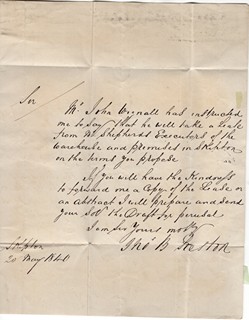 Sir
Mr. John Wignall has instructed
me to say that he will take a Lease
from Mr. Shepherds Executors of the
Warehouse and premises in Skipton
on the terms you propose
If you will have the Kindness
to forward me a Copy of the Lease or
an Abstract I will prepare and send
your Solr. the Draft for perusal
I am Sir Yours
Thos. B.
Skipton
20 May